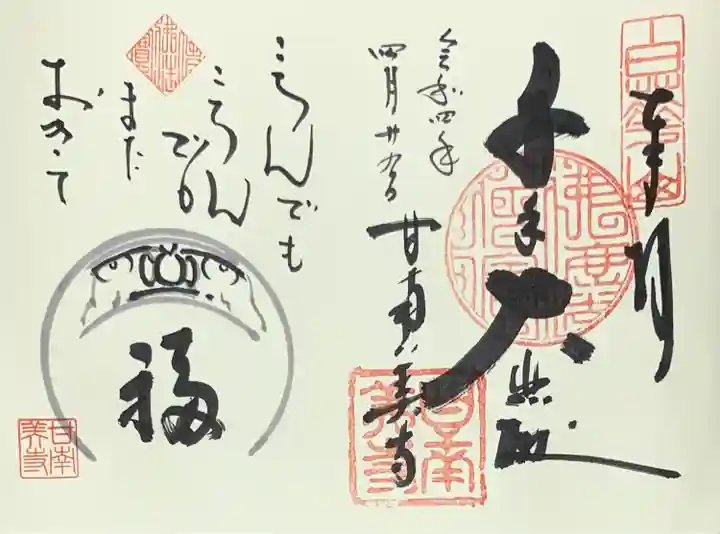 奉拝
千手大悲殿
令和四年
四月廿九日
甘南美寺
佛法僧寶
甘南美寺
ころんでも
ころんでも
また
おきて
佛法僧寶
福
甘南美寺